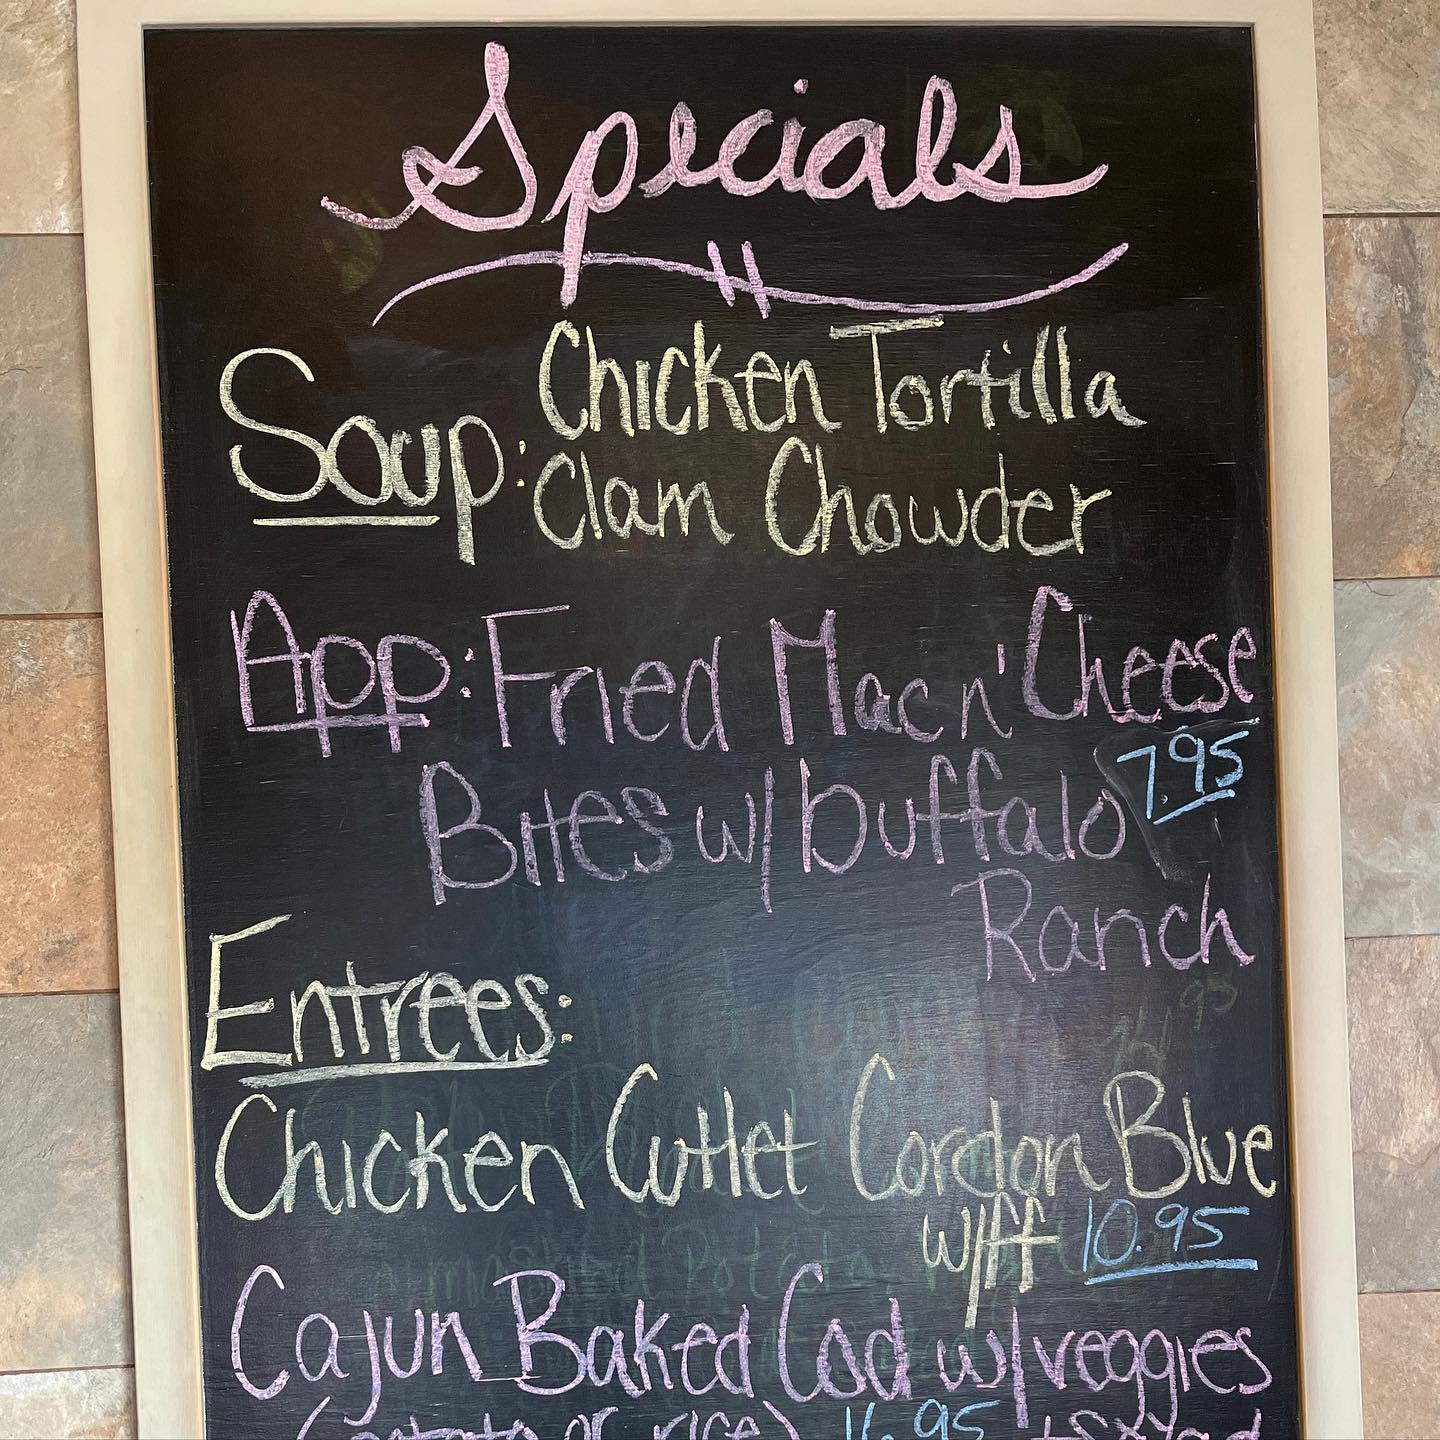 Specials
Soup: Chicken Tortilla
Clam Chowder
App: Fried Mac n' Cheese
7.95
Bites w/ buffalo
Ranch
Entrees:
Chicken Cutlet Cordon Blue
w/ff 10.95
Cajun Baked Cod w/veggies
(potato or rice) 16.95